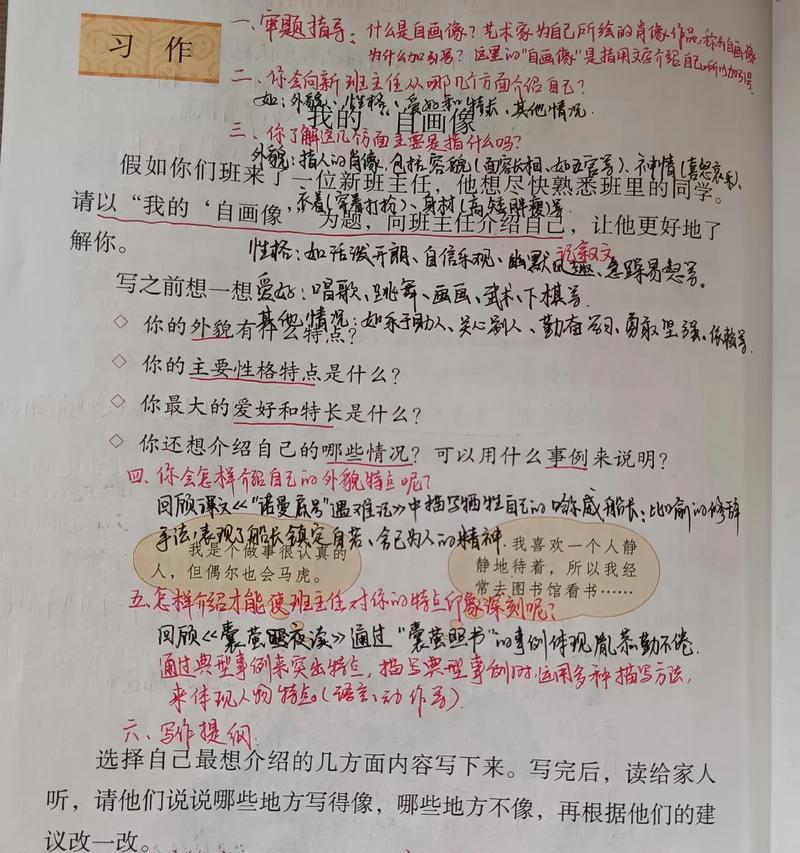 习 作
一、审题指导：什么是自画像？艺术家为自己所绘的肖像作品，称为自画像
为什么加引号？这里的“自画像”是指用文字介绍自己，所以加引号
二、你会向新班主任从哪几个方面介绍自己？
如：外貌、性格、爱好和特长、其他情况.
我的“自画像
三、你了解这几个方面主要是指什么吗？
外貌：指人的肖像，包括容貌（面容长相、如五官等）、神情（喜怒哀乐）、
假如你们班来了一位新班主任，他想尽快熟悉班里的同学。
衣着（穿着打扮）、身材（高矮胖瘦）等
请以“我的‘自画像 为题，向班主任介绍自己，让他更好地了
解你。
记叙文
性格：如活泼开朗、自信乐观、幽默风趣、急躁易怒等。
写之前想一想
爱好：唱歌、跳舞、画画、武术、下棋等
其他情况：如乐于助人、关心别人、勤奋学习、勇敢坚强、依赖等.
◇ 你的外貌有什么特点？
◇ 你的主要性格特点是什么？
◇ 你最大的爱好和特长是什么？
◇ 你还想介绍自己的哪些情况？可以用什么事例来说明？
四、你会怎样介绍自己的外貌特点呢？
回顾课文《“诺曼底号”遇难记》中描写牺牲自己的哈尔威船长：比喻的修辞
手法，表现了船长镇定自若、舍己为人的精神.
我是个做事很认真的
人，但偶尔也会马虎。
我喜欢一个人静
静地待着，所以我经
常去图书馆看书……
五、怎样介绍才能使班主任对你的特点印象深刻呢？
回顾《囊萤夜读》通过“囊萤照书”的事例体现胤恭勤不倦.
通过典型事例来突出特点，描写典型事例时，运用多种描写方法，
来体现人物特点。（语言、动作等）
六、写作提纲：
选择自己最想介绍的几方面内容写下来。写完后，读给家人
听，请他们说说哪些地方写得像，哪些地方不像，再根据他们的建
议改一改。